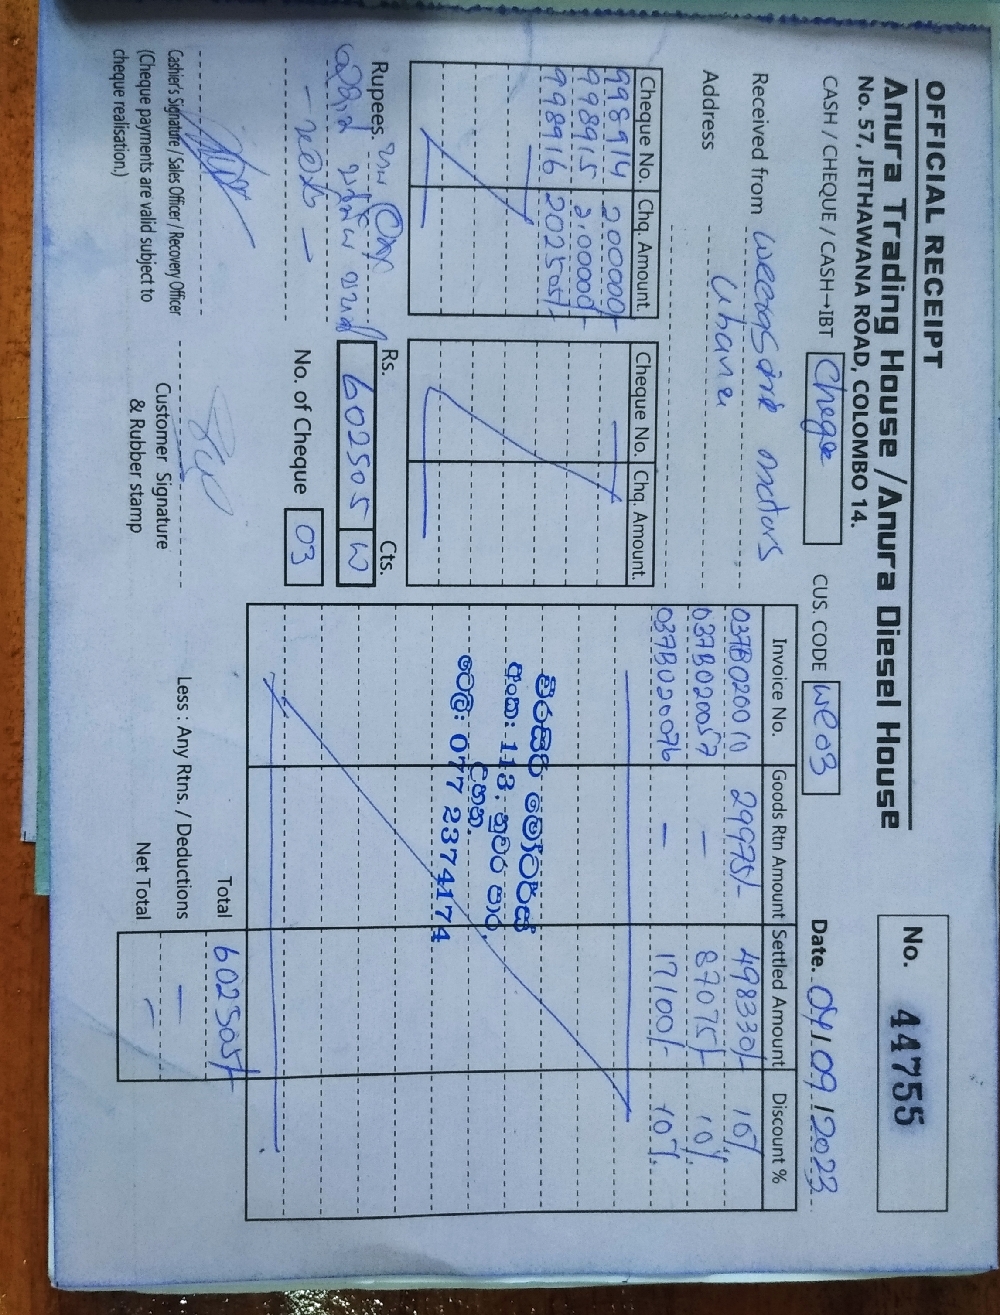 OFFICIAL RECEIPT
Anura Trading House /Anura Diesel House
No. 57, JETHAWANA ROAD, COLOMBO 14.
No. 44755
CASH / CHEQUE / CASH→IBT Cheque
CUS. CODE We03
Date. 04/09/2023
Received from weerasiri motors
Address Uhana
Cheque No. Chq. Amount.
998914 200000/-
998915 200000/-
998916 202505/-
Cheque No. Chq. Amount.
Rupees.
Rs. Cts.
602505
No. of Cheque 03
Cashier's Signature / Sales Officer / Recovery Officer
(Cheque payments are valid subject to
cheque realisation.)
Customer Signature
& Rubber stamp
Invoice No. Goods Rtn Amount Settled Amount Discount %
037B020010 29975/- 498330/- 10%
037B020057 – 87075/- 10%
037B020076 – 17100/- 10%
වීරසිරි මෝටර්ස්
අංක: 113, නුවර පාර
උහන.
ටෙලි: 077 2374174
Total 602505/-
Less : Any Rtns. / Deductions –
Net Total –